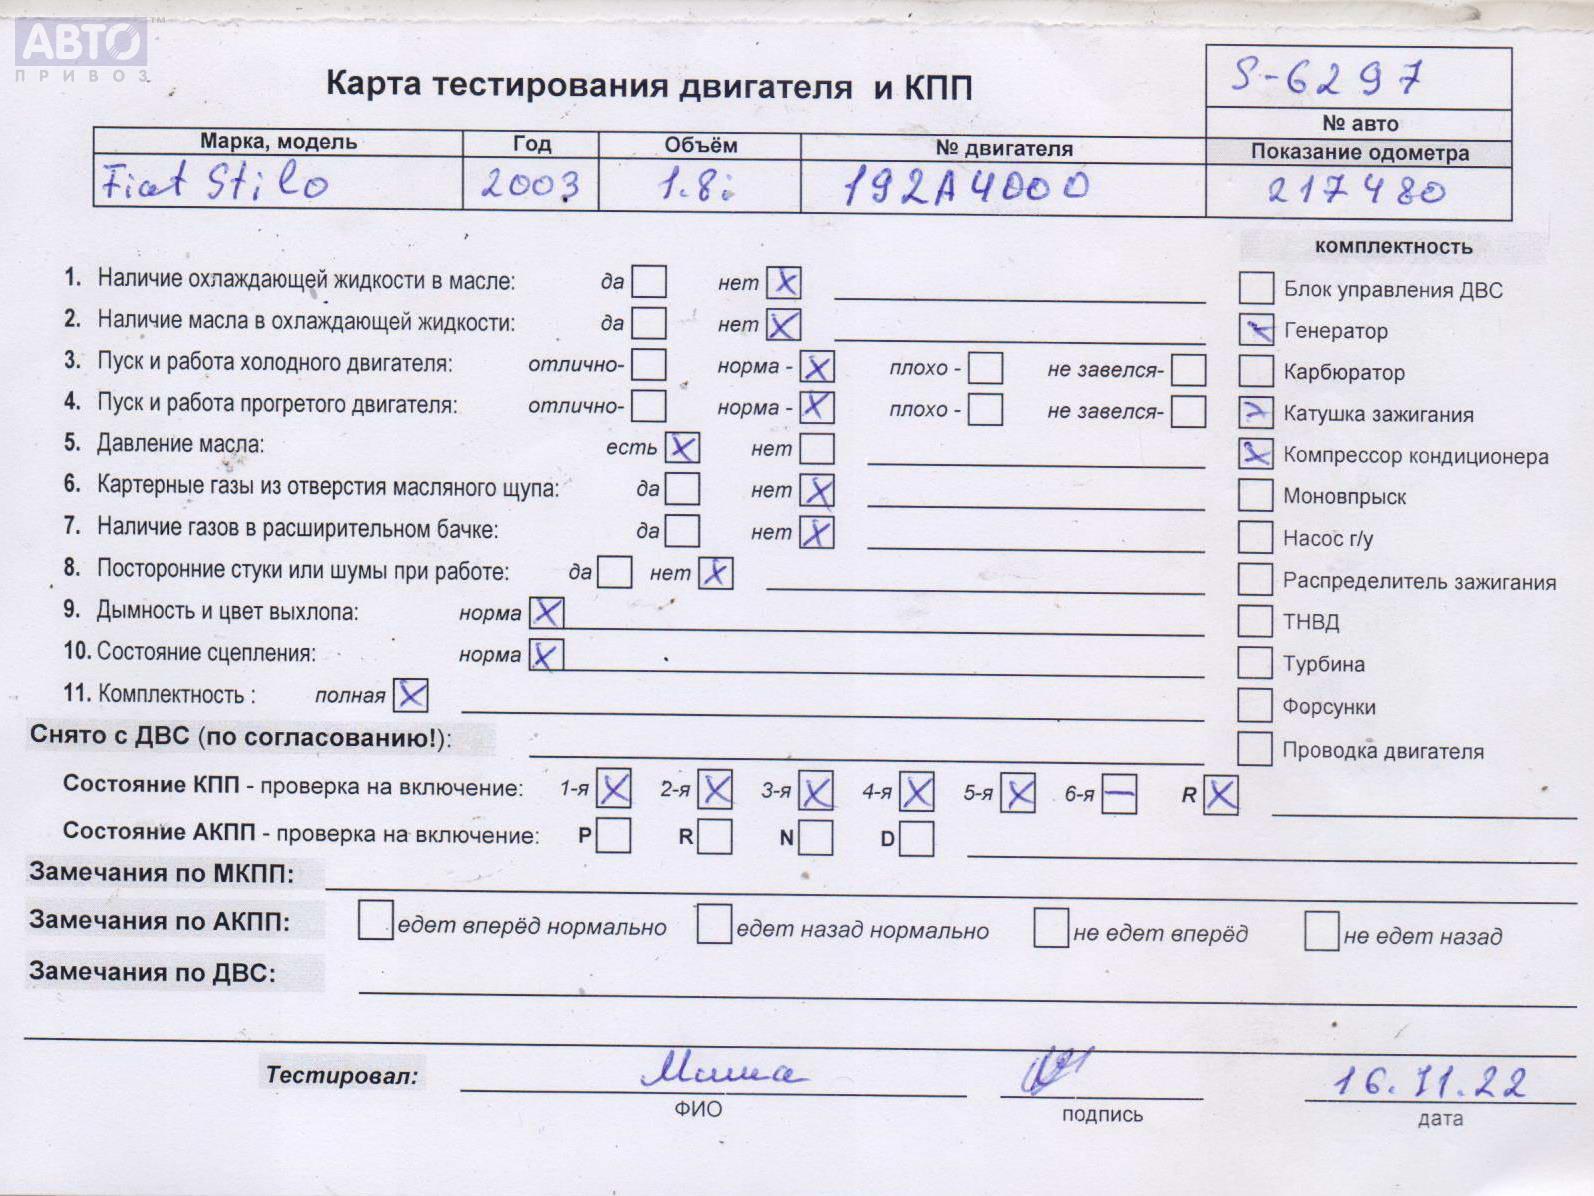 АВТО™
ПРИВОЗ
Карта тестирования двигателя и КПП
S-6297
№ авто
Марка, модель Год Объём № двигателя Показание одометра
Fiat Stilo 2003 1.8i 192A4000 217480
комплектность
1. Наличие охлаждающей жидкости в масле: да нет X
Блок управления ДВС
2. Наличие масла в охлаждающей жидкости: да нет X
Генератор
3. Пуск и работа холодного двигателя: отлично- норма - X плохо - не завелся-
Карбюратор
4. Пуск и работа прогретого двигателя: отлично- норма - X плохо - не завелся-
Катушка зажигания
5. Давление масла: есть X нет
X Компрессор кондиционера
6. Картерные газы из отверстия масляного щупа: да нет X
Моновпрыск
7. Наличие газов в расширительном бачке: да нет X
Насос г/у
8. Посторонние стуки или шумы при работе: да нет X
Распределитель зажигания
9. Дымность и цвет выхлопа: норма X
ТНВД
10. Состояние сцепления: норма X
Турбина
11. Комплектность : полная X
Форсунки
Снято с ДВС (по согласованию!):
Проводка двигателя
Состояние КПП - проверка на включение: 1-я X 2-я X 3-я X 4-я X 5-я X 6-я — R X
Состояние АКПП - проверка на включение: P R N D
Замечания по МКПП:
Замечания по АКПП: едет вперёд нормально едет назад нормально не едет вперёд не едет назад
Замечания по ДВС:
Тестировал: Миша 16.11.22
ФИО подпись дата